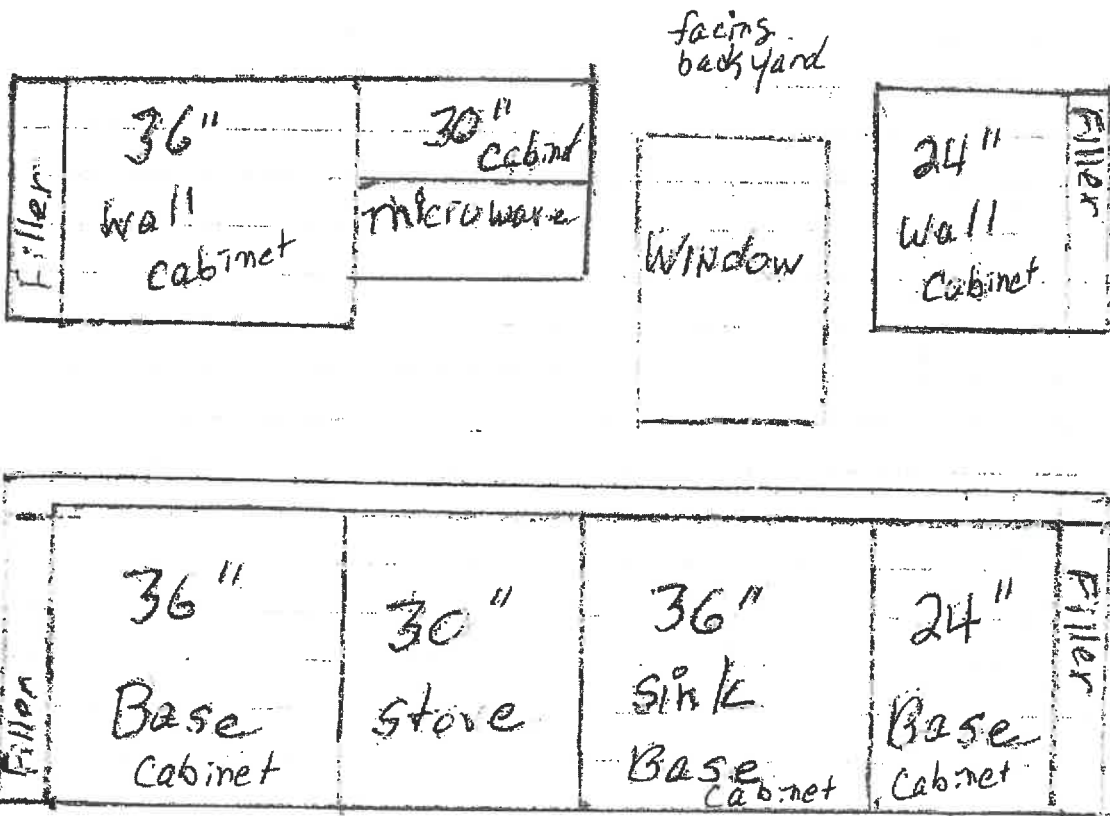 facing
backyard
Filler
36"
wall
cabinet
30"
cabint
microwave
Window
24"
Wall
Cabinet
Filler
Filler
36"
Base
Cabinet
30"
stove
36"
sink
Base
Cabinet
24"
Base
Cabinet
Filler